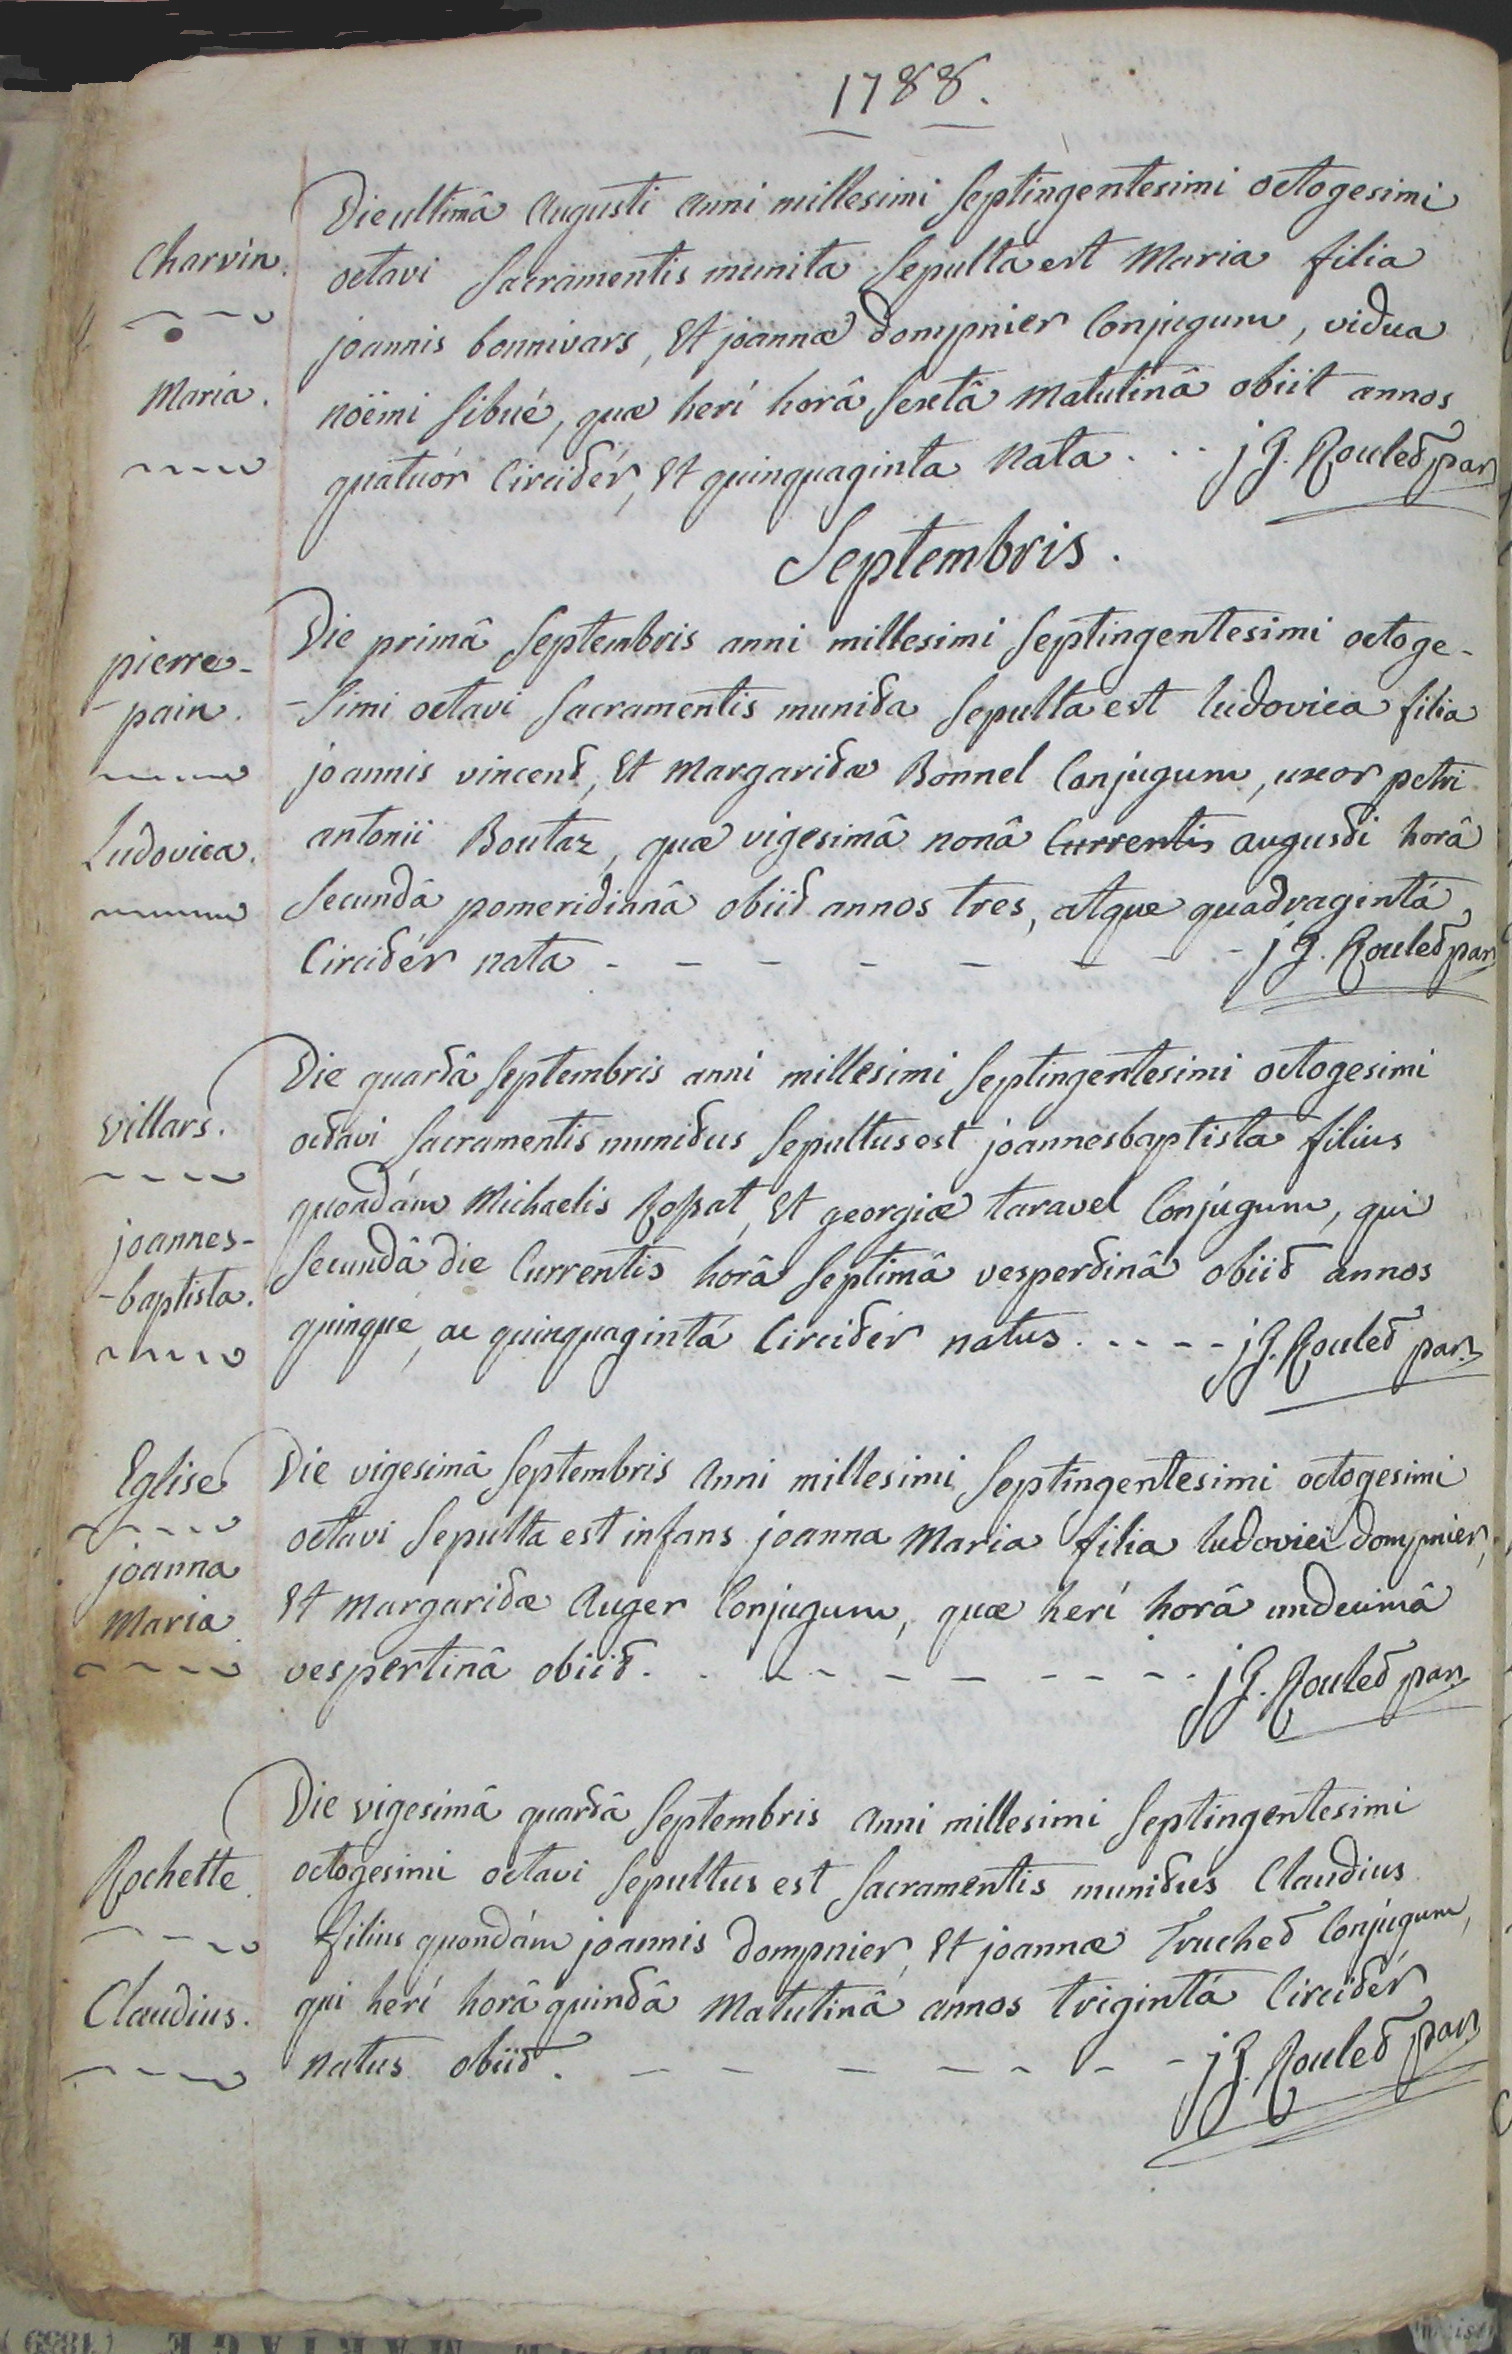 1788.
Charvin.
Maria.
Die ultimâ Augusti anni millesimi septingentesimi octogesimi
octavi sacramentis munita sepulta est Maria filia
joannis bonnivars, Et joannæ dompnier Conjugum, vidua
noëmi sibué, quæ herí horâ sextâ matutinâ obiit annos
quatuór Circitér, Et quinquaginta nata . . . j J. Roulet par
Septembris.
pierre-
-pain.
Ludovica.
Die primâ septembris anni millesimi septingentesimi octoge-
-simi octavi sacramentis munita sepulta est ludovica filia
joannis vincent, Et Margaritæ Bonnel Conjugum, uxor petri
antonii Boutaz, quæ vigesimâ nonâ Currentis augusti horâ
secundâ pomeridianâ obiit annos tres, atque quadragintá
Circitér nata - - - - - - - - j J. Roulet par
villars.
joannes-
-baptista.
Die quartâ septembris anni millesimi septingentesimi octogesimi
octavi sacramentis munitus sepultus est joannesbaptista filius
quondám Michaelis Rossat, Et georgiæ taravel Conjugum, qui
secundâ die Currentis horâ septimâ vespertinâ obiit annos
quinque, ac quinquagintá Circitér natus . - - - - j J. Roulet par.
Eglise
joanna
Maria
Die vigesimâ septembris anni millesimi septingentesimi octogesimi
octavi sepulta est infans joanna Maria filia ludovici dompnier,
Et Margaritæ Auger Conjugum, quæ herí horâ undecimâ
vespertinâ obiit. - - - - - - - - j J. Roulet par
Rochette
Claudius.
Die vigesimâ quartâ septembris anni millesimi septingentesimi
octogesimi octavi sepultus est sacramentis munitus Claudius
filius quondám joannis dompnier, Et joannæ Truchet Conjúgum,
qui herí horâ quintâ matutinâ annos trigintá Circitér
natus obiit. - - - - - - - j J. Roulet par
MARIAGE (1899)